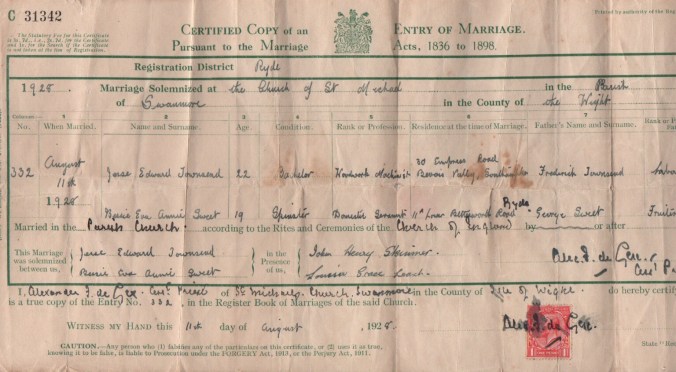 C 31342
CERTIFIED COPY of an ENTRY OF MARRIAGE.
Pursuant to the Marriage Acts, 1836 to 1898.
Printed by authority of the
The Statutory Fee for this Certificate
Registration District Ryde
1928. Marriage Solemnized at the Church of St Michael in the Parish
of Swanmore in the County of Wight
Columns:— 1 2 3 4 5 6 7
No. When Married. Name and Surname. Age. Condition. Rank or Profession. Residence at the time of Marriage. Father's Name and Surname.
332 August 11th 1928 Edward Townsend 22 Bachelor 30 Empress Road Bevois Valley Southampton Frederick Townsend
Eva Annie Sweet 19 Spinster Domestic Servant Road Ryde George Sweet
Married in the Parish Church according to the Rites and Ceremonies of the Church of England by or after
This Marriage was solemnized between us, Edward Townsend in the Presence of us, John Henry
Eva Annie Sweet Grace
I, Alexander de Gex of St Michael's Church, Swanmore in the County of Isle of Wight do hereby certify
is a true copy of the Entry No. 332, in the Register Book of Marriages of the said Church.
WITNESS MY HAND this 11th day of August 1928
CAUTION.—Any person who (1) falsifies any of the particulars on this certificate, or (2) uses it as true,
knowing it to be false, is liable to Prosecution under the FORGERY Act, 1913, or the Perjury Act, 1911.